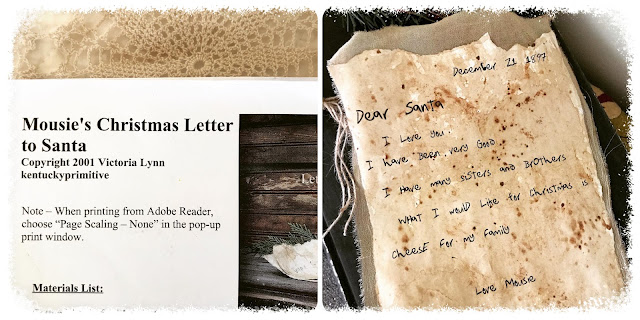 Mousie's Christmas Letter
to Santa
Copyright 2001 Victoria Lynn
kentuckyprimitive
Note – When printing from Adobe Reader,
choose “Page Scaling – None” in the pop-up
print window.
Materials List:
December 21 1897
Dear Santa
I Love you.
I have Been very Good.
I Have many sisters and Brothers
What I would Like for Christmas is
CheesE For my Family
Love Mousie